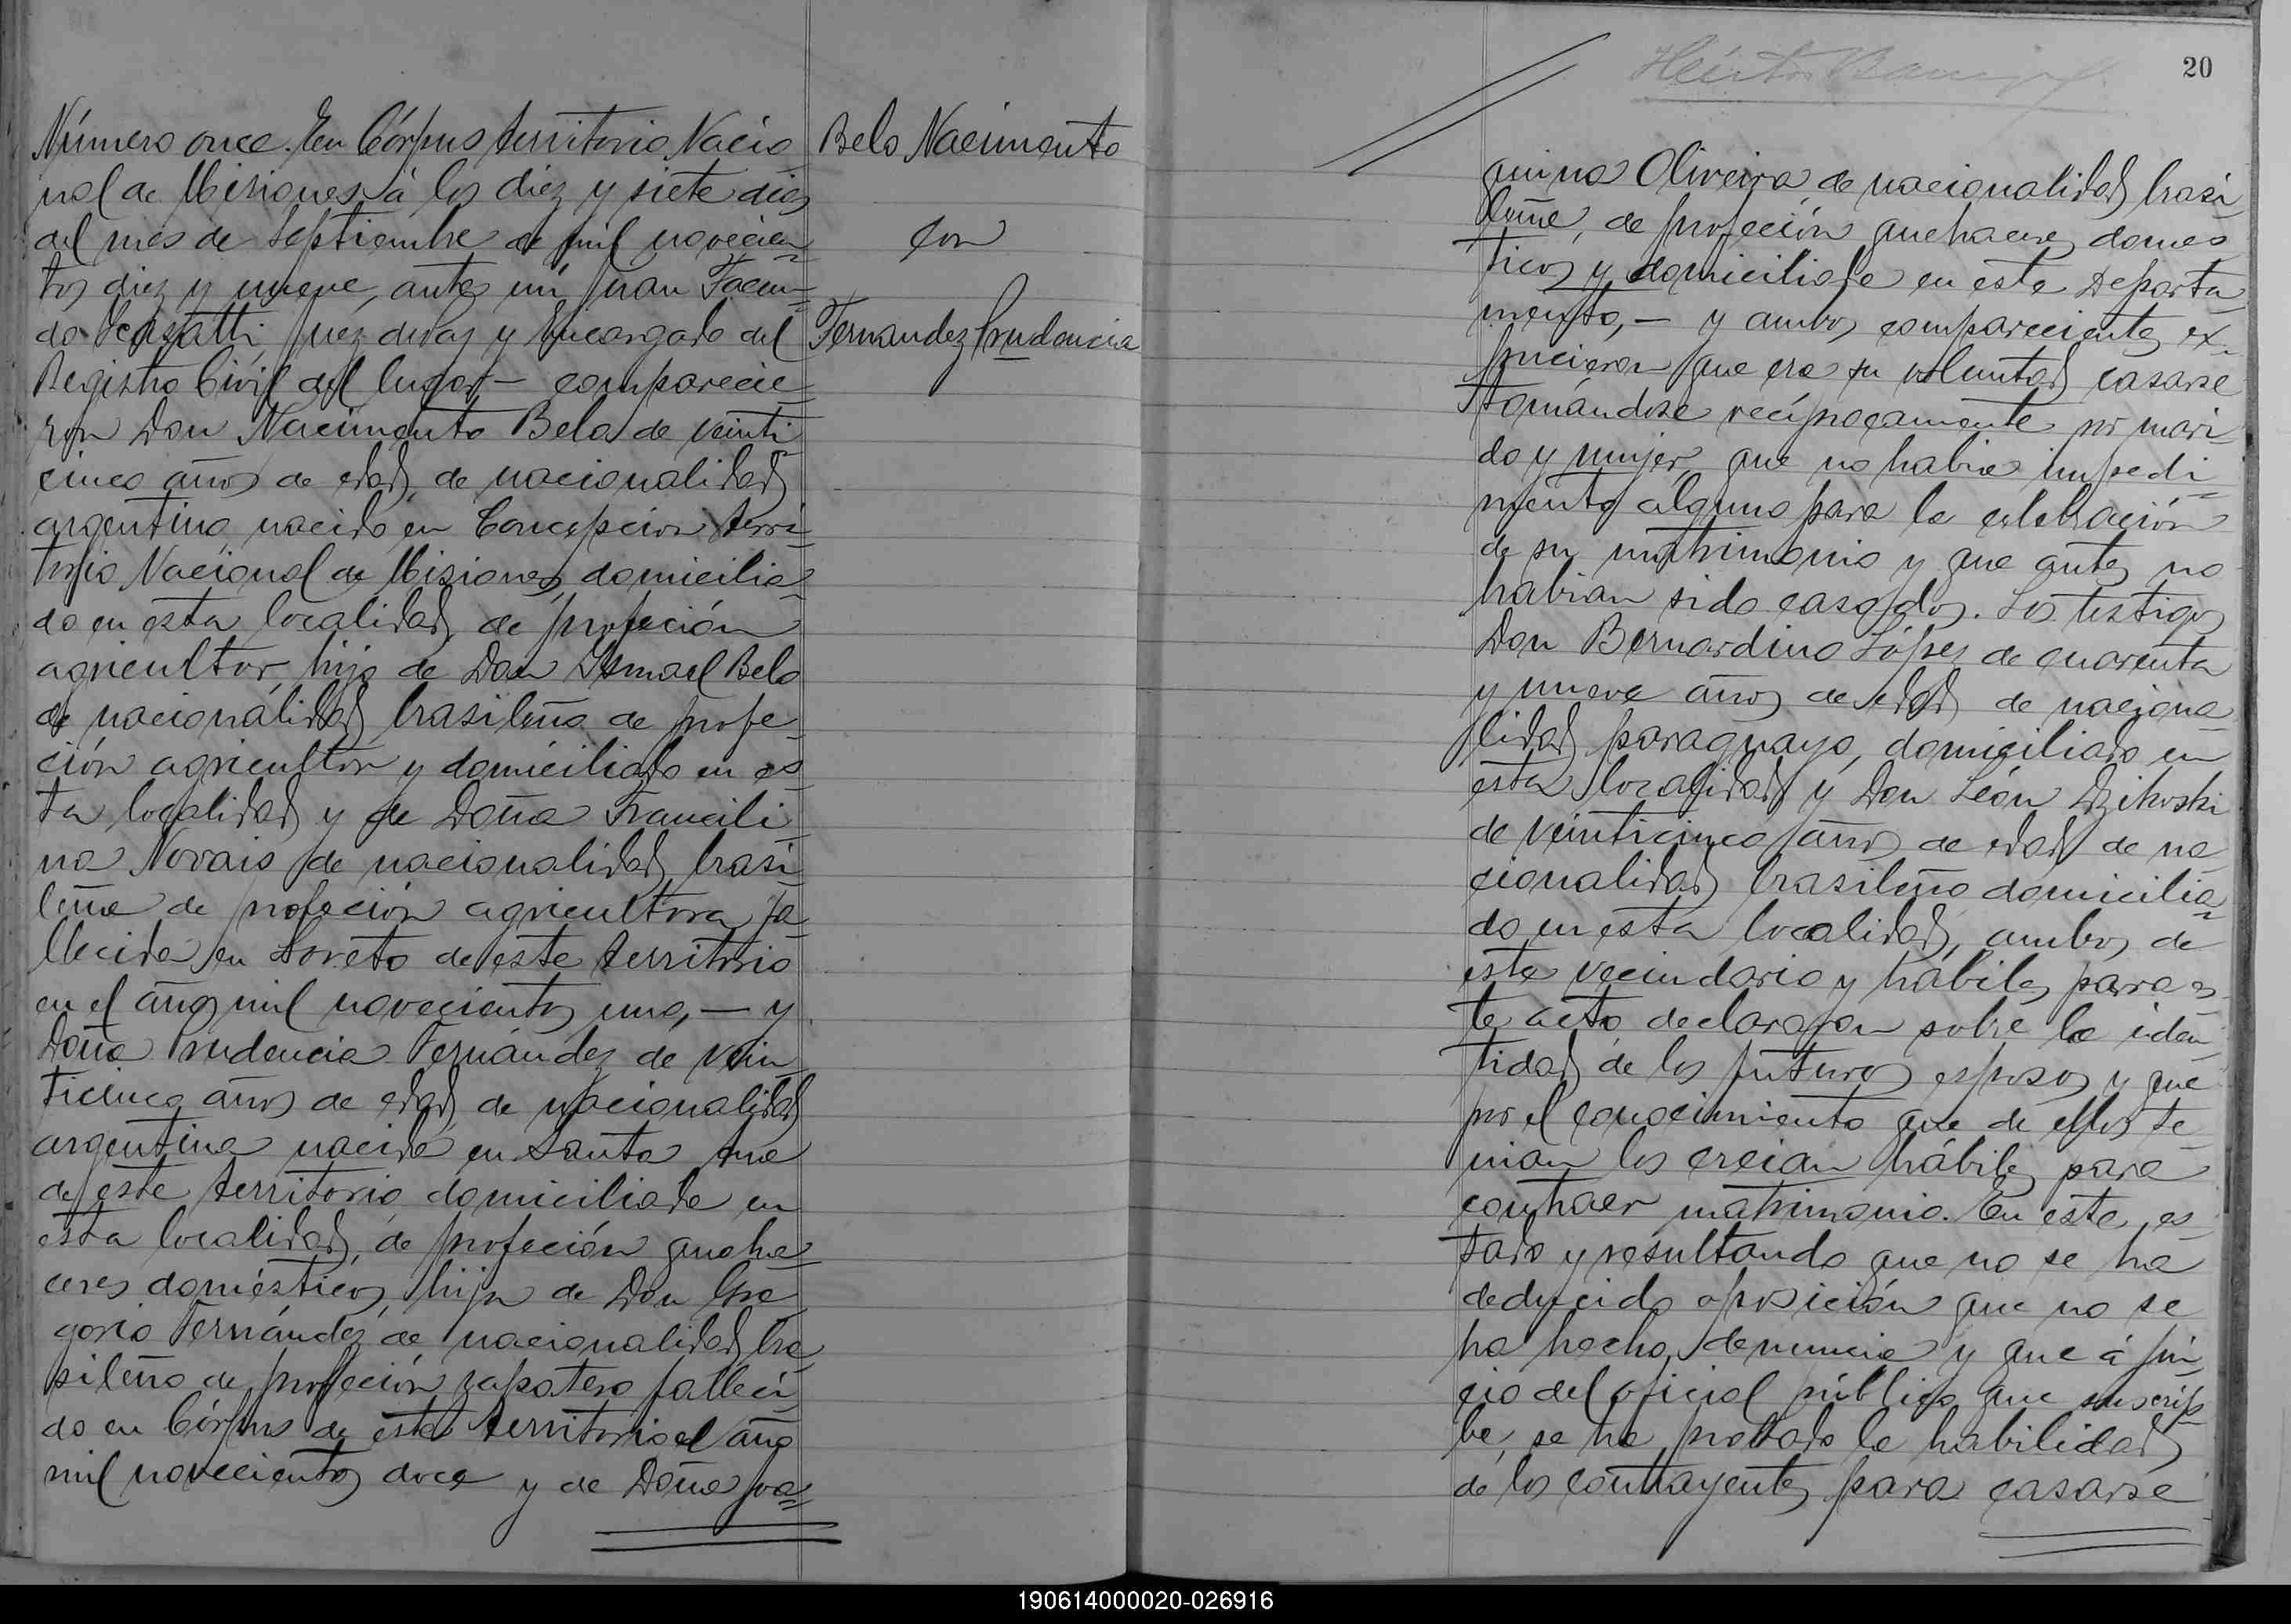 Número once. En Córpus territorio Nacio
nal de Misiones á los diez y siete dias
del mes de Septiembre de mil novecien=
tos diez y nueve, antes mi Juan Facun=
do Juez de Paz y Encargado del
Registro Civil del lugar — comparecie
ron Don Nacimento Belo de veinti
cinco años de edad, de nacionalidad
argentino, nacido en Concepcion terri=
torio Nacional de Misiones, domicilia=
do en esta localidad, de profeción
agricultor, hijo de Don Ismael Belo
de nacionalidad brasileño de profe=
ción agricultor y domiciliado en es
ta localidad y de Doña Francili
na Novais de nacionalidad brasi
leña de profeción agricultora, fa=
llecida en Loreto de este territorio
en el año mil novecientos uno, — y
Doña Prudencia Fernández de vein
ticinco años de edad, de nacionalidad
argentina nacida en Santa Ana
de este territorio, domiciliada en
esta localidad, de profeción queha=
ceres domésticos, hija de Don Gre
gorio Fernández, de nacionalidad bra
sileño de profeción zapatero falleci
do en Córpus de este territorio el año
mil novecientos doce y de Doña Joa=
Belo Nacimento
con
Fernandez Prudencia
20
quina Oliveira de nacionalidad brasi
leña, de profeción quehaceres domes
ticos y domiciliada en este Departa
mento, — y ambos comparecientes ex=
pucieron que era su voluntad casarse
tomándose recíprocamente por mari=
do y mujer, que no habia impedi=
mento alguno para la celebración
de su matrimonio y que antes no
habian sido casados. Los testigos
Don Bernardino López de cuarenta
y nueve años de edad, de naciona
lidad paraguayo, domiciliado en
esta localidad y Don León Dzikoski
de veinticinco años de edad de na
cionalidad brasileño domicilia=
do en esta localidad, ambos de
este vecindario y hábiles para es
te acto declararon sobre la iden
tidad de los futuros esposos y que
por el conocimiento que de ellos te
nian los creian hábiles para
contraer matrimonio. En este es
tado y resultando que no se ha
deducido oposición que no se
ha hecho denuncia y que á jui
cio del oficial público que suscri
be, se ha probado la habilidad
de los contrayentes para casarse
190614000020-026916